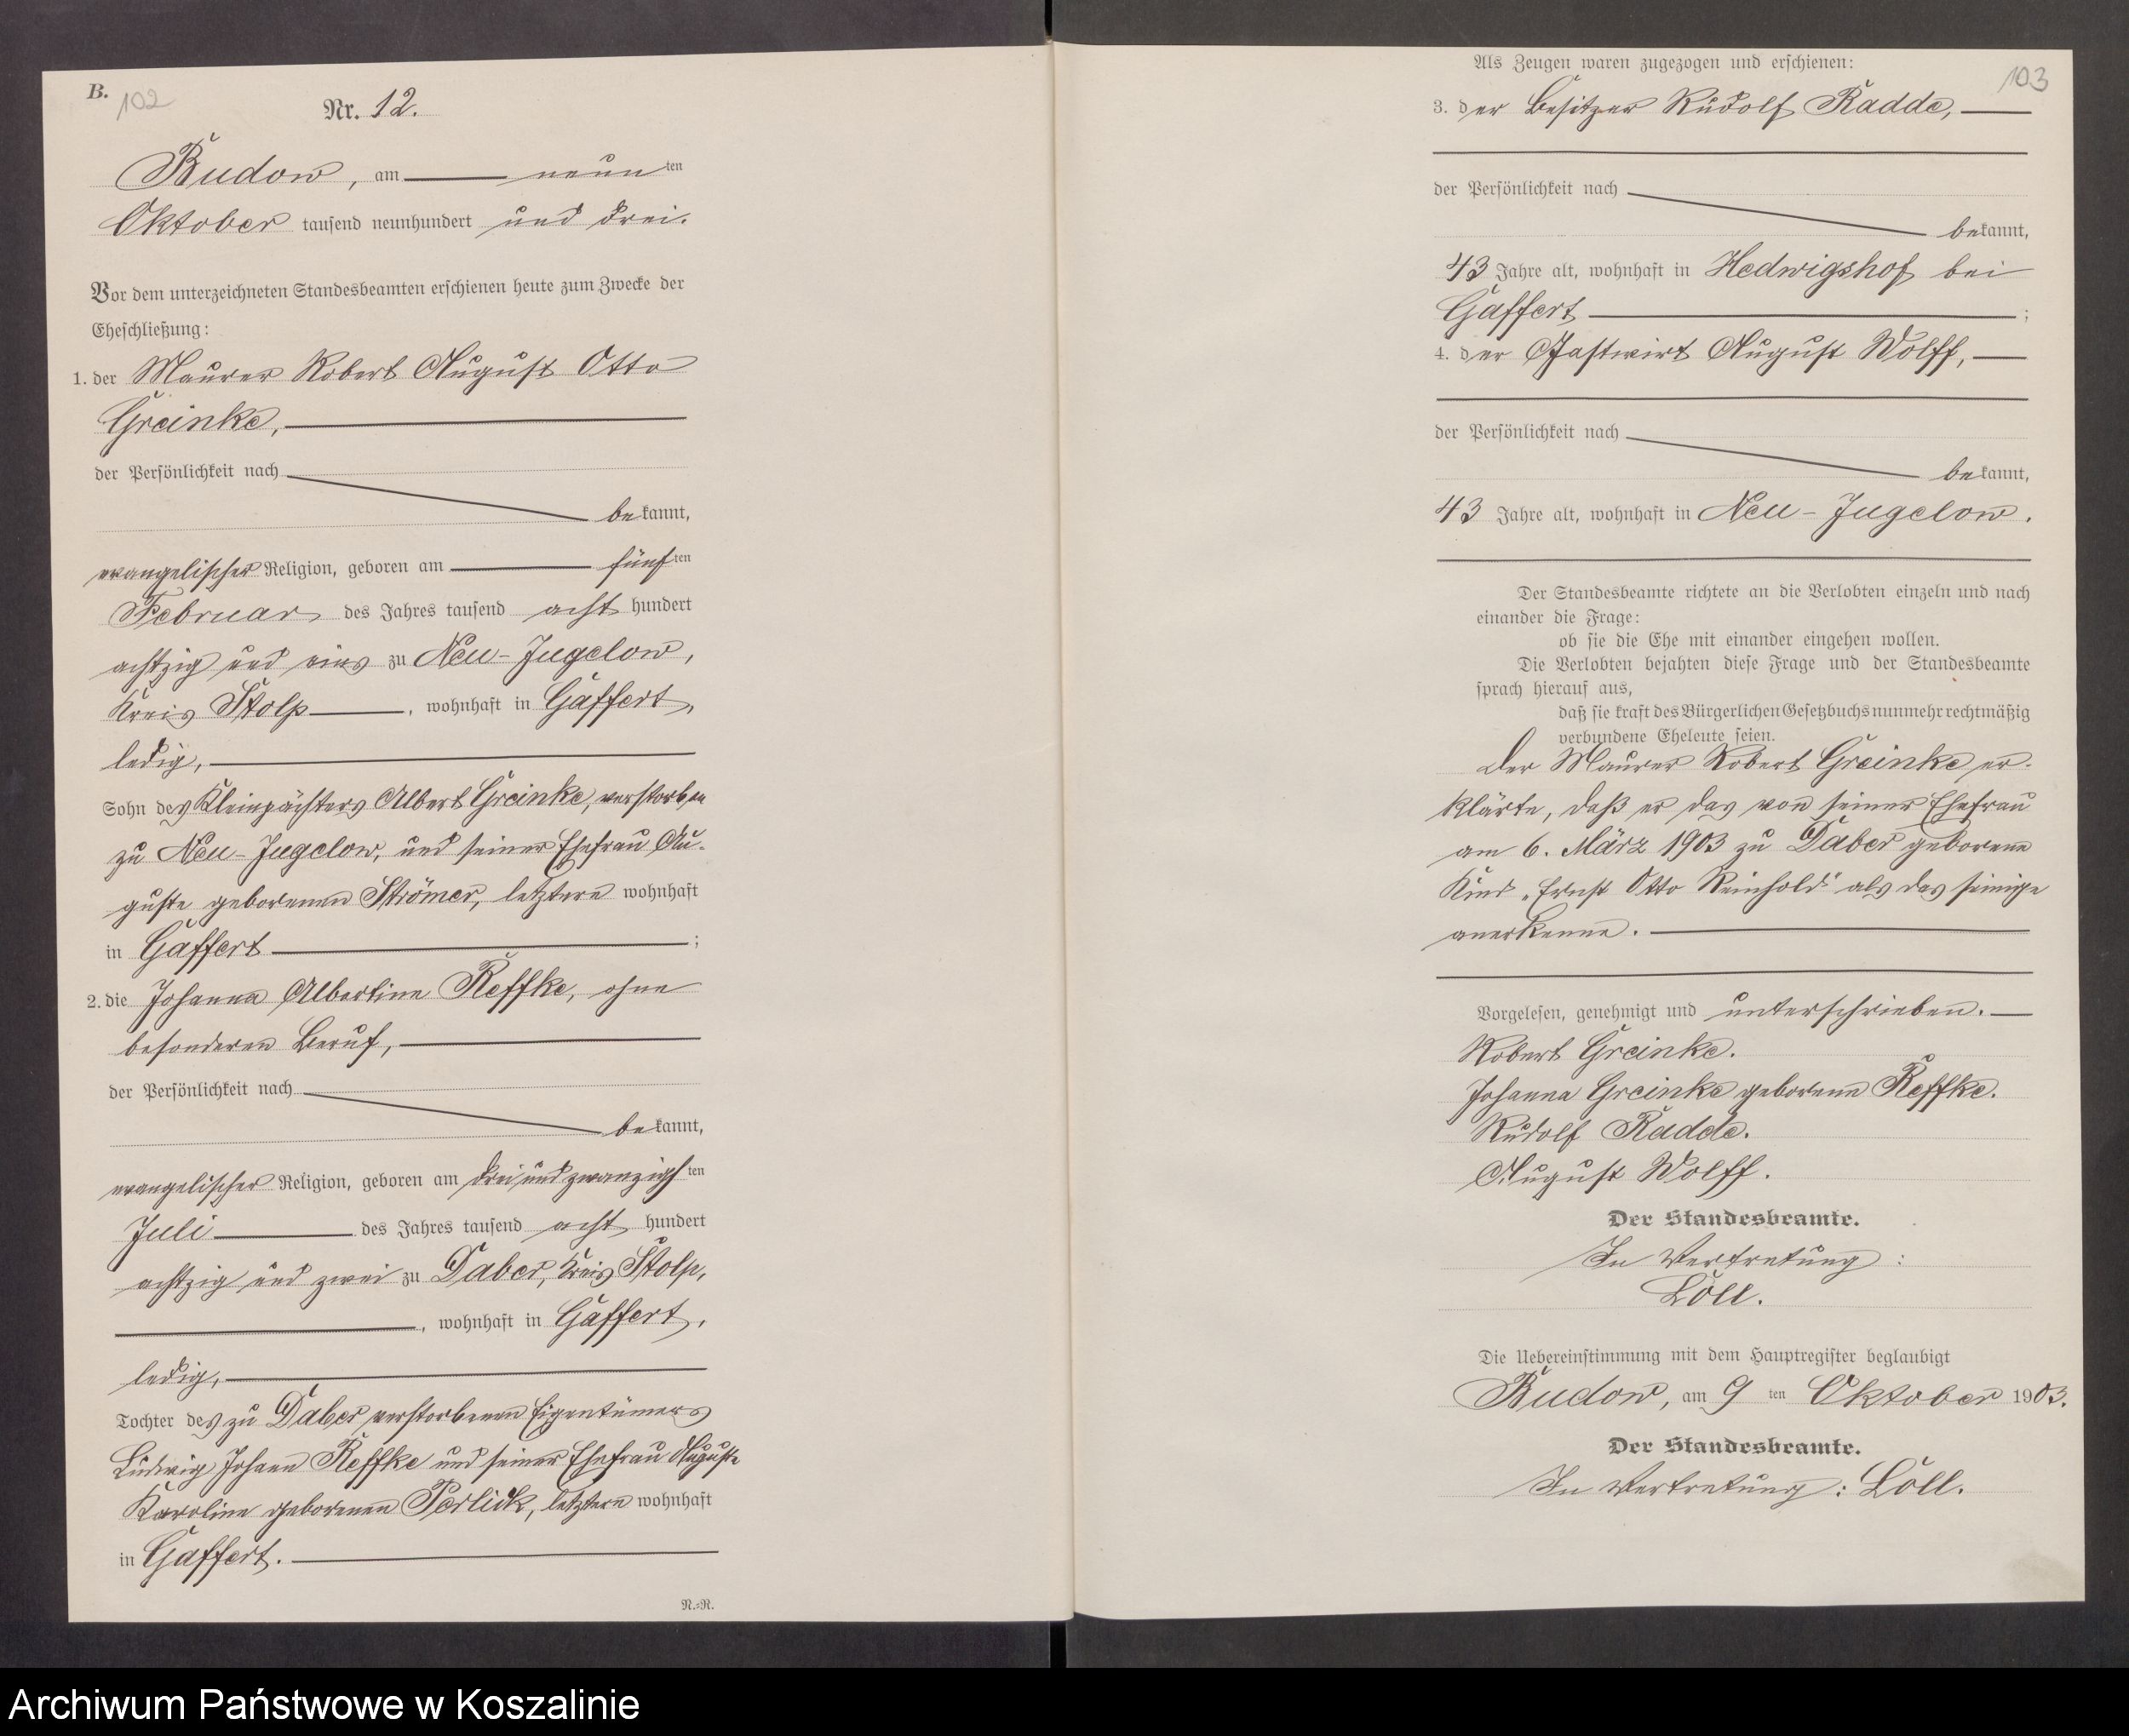 B.
102
Nr. 12.
Budow, am neunten
Oktober tausend neunhundert und drei.
Vor dem unterzeichneten Standesbeamten erschienen heute zum Zwecke der
Eheschließung:
1. der Maurer Robert August Otto
Greinke,
der Persönlichkeit nach
bekannt,
evangelischer Religion, geboren am fünften
Februar des Jahres tausend acht hundert
achtzig und eins zu Neu-Jugelow,
Kreis Stolp, wohnhaft in Gaffert,
ledig,
Sohn des Kleinpächters Albert Greinke, verstorben
zu Neu-Jugelow, und seiner Ehefrau Au-
guste geborenen Strömer, letztere wohnhaft
in Gaffert;
2. die Johanna Albertine Reffke, ohne
besonderen Beruf,
der Persönlichkeit nach
bekannt,
evangelischer Religion, geboren am dreiundzwanzigsten
Juli des Jahres tausend acht hundert
achtzig und zwei zu Daber, Kreis Stolp,
, wohnhaft in Gaffert,
ledig,
Tochter des zu Daber verstorbenen Eigentümers
Ludwig Johann Reffke und seiner Ehefrau Auguste
Karoline geborenen Perlick, letztere wohnhaft
in Gaffert.
N.=R.
103
Als Zeugen waren zugezogen und erschienen:
3. der Besitzer Rudolf Radde,
der Persönlichkeit nach
bekannt,
43 Jahre alt, wohnhaft in Hedwigshof bei
Gaffert;
4. der Gastwirt August Wolff,
der Persönlichkeit nach
bekannt,
43 Jahre alt, wohnhaft in Neu-Jugelow.
Der Standesbeamte richtete an die Verlobten einzeln und nach
einander die Frage:
ob sie die Ehe mit einander eingehen wollen.
Die Verlobten bejahten diese Frage und der Standesbeamte
sprach hierauf aus,
daß sie kraft des Bürgerlichen Gesetzbuchs nunmehr rechtmäßig
verbundene Eheleute seien.
Der Maurer Robert Greinke er-
klärte, daß er das von seiner Ehefrau
am 6. März 1903 zu Daber geborene
Kind "Ernst Otto Reinhold" als das seinige
anerkenne.
Vorgelesen, genehmigt und unterschrieben.
Robert Greinke.
Johanna Greinke geborene Reffke.
Rudolf Radde.
August Wolff.
Der Standesbeamte.
In Vertretung:
Löll.
Die Uebereinstimmung mit dem Hauptregister beglaubigt
Budow, am 9ten Oktober 1903.
Der Standesbeamte.
In Vertretung: Löll.
Archiwum Państwowe w Koszalinie